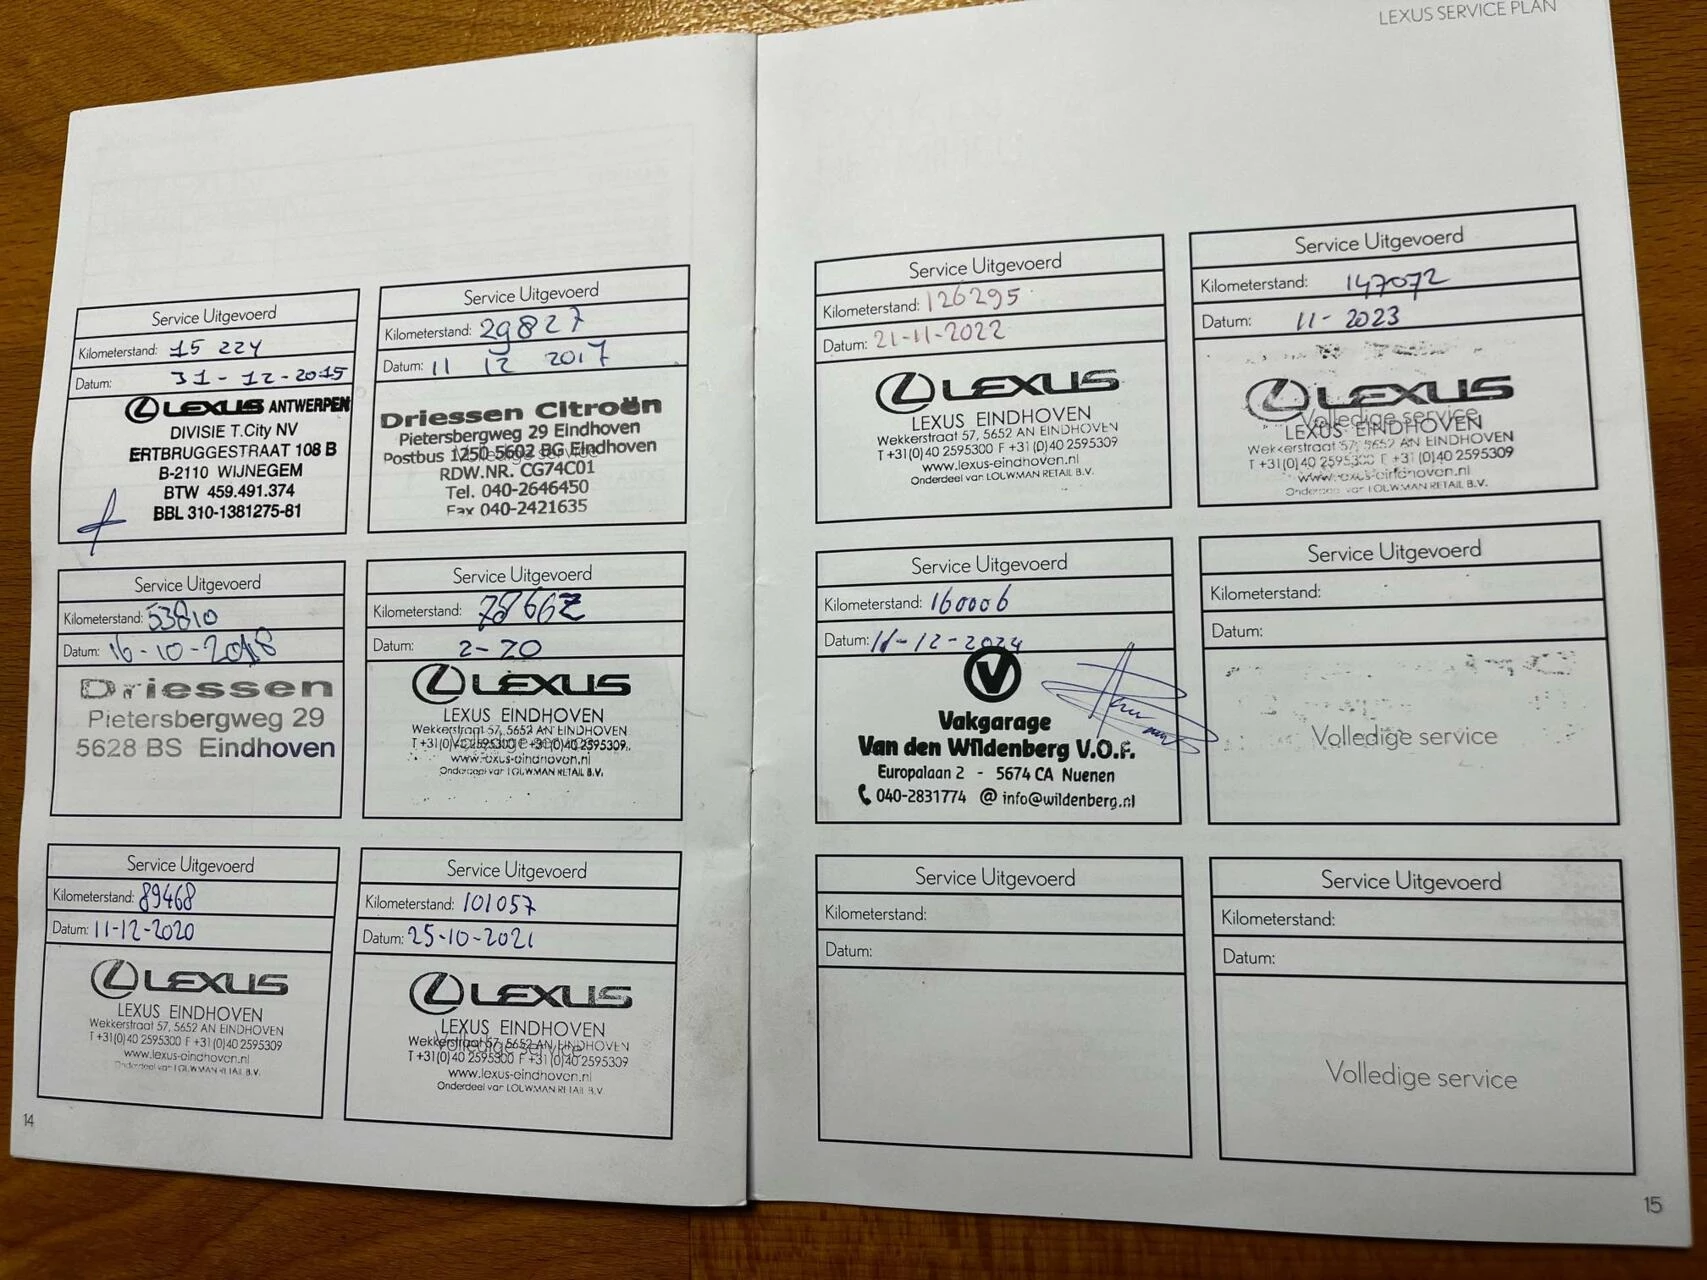 LEXUS SERVICE PLAN
Service Uitgevoerd
Kilometerstand: 15 224
Datum: 31-12-2015
LEXUS ANTWERPEN
DIVISIE T.City NV
ERTBRUGGESTRAAT 108 B
B-2110 WIJNEGEM
BTW 459.491.374
BBL 310-1381275-81
Service Uitgevoerd
Kilometerstand: 29827
Datum: 11 12 2017
Driessen Citroën
Pietersbergweg 29 Eindhoven
Postbus 1250 5602 BG Eindhoven
RDW.NR. CG74C01
Tel. 040-2646450
Fax 040-2421635
Service Uitgevoerd
Kilometerstand: 53810
Datum: 16-10-2018
Driessen
Pietersbergweg 29
5628 BS Eindhoven
Service Uitgevoerd
Kilometerstand: 78662
Datum: 2-20
LEXUS
LEXUS EINDHOVEN
Wekkerstraat 57, 5652 AN EINDHOVEN
T +31(0)40 2595300 F +31(0)40 2595309
www.lexus-eindhoven.nl
Onderdeel van LOUWMAN RETAIL B.V.
Service Uitgevoerd
Kilometerstand: 89468
Datum: 11-12-2020
LEXUS
LEXUS EINDHOVEN
Wekkerstraat 57, 5652 AN EINDHOVEN
T +31(0)40 2595300 F +31(0)40 2595309
www.lexus-eindhoven.nl
Onderdeel van LOUWMAN RETAIL B.V.
Service Uitgevoerd
Kilometerstand: 101057
Datum: 25-10-2021
LEXUS
LEXUS EINDHOVEN
Volledige service
Wekkerstraat 57, 5652 AN EINDHOVEN
T +31(0)40 2595300 F +31(0)40 2595309
www.lexus-eindhoven.nl
Onderdeel van LOUWMAN RETAIL B.V.
14
Service Uitgevoerd
Kilometerstand: 126295
Datum: 21-11-2022
LEXUS
LEXUS EINDHOVEN
Wekkerstraat 57, 5652 AN EINDHOVEN
T +31(0)40 2595300 F +31(0)40 2595309
www.lexus-eindhoven.nl
Onderdeel van LOUWMAN RETAIL B.V.
Service Uitgevoerd
Kilometerstand: 147072
Datum: 11-2023
LEXUS
Volledige service
LEXUS EINDHOVEN
Wekkerstraat 57, 5652 AN EINDHOVEN
T +31(0)40 2595300 F +31(0)40 2595309
www.lexus-eindhoven.nl
Onderdeel van LOUWMAN RETAIL B.V.
Service Uitgevoerd
Kilometerstand: 160006
Datum: 11-12-2024
Vakgarage
Van den Wildenberg V.O.F.
Europalaan 2 - 5674 CA Nuenen
040-2831774 @ info@wildenberg.nl
Service Uitgevoerd
Kilometerstand:
Datum:
Volledige service
Service Uitgevoerd
Kilometerstand:
Datum:
Service Uitgevoerd
Kilometerstand:
Datum:
Volledige service
15